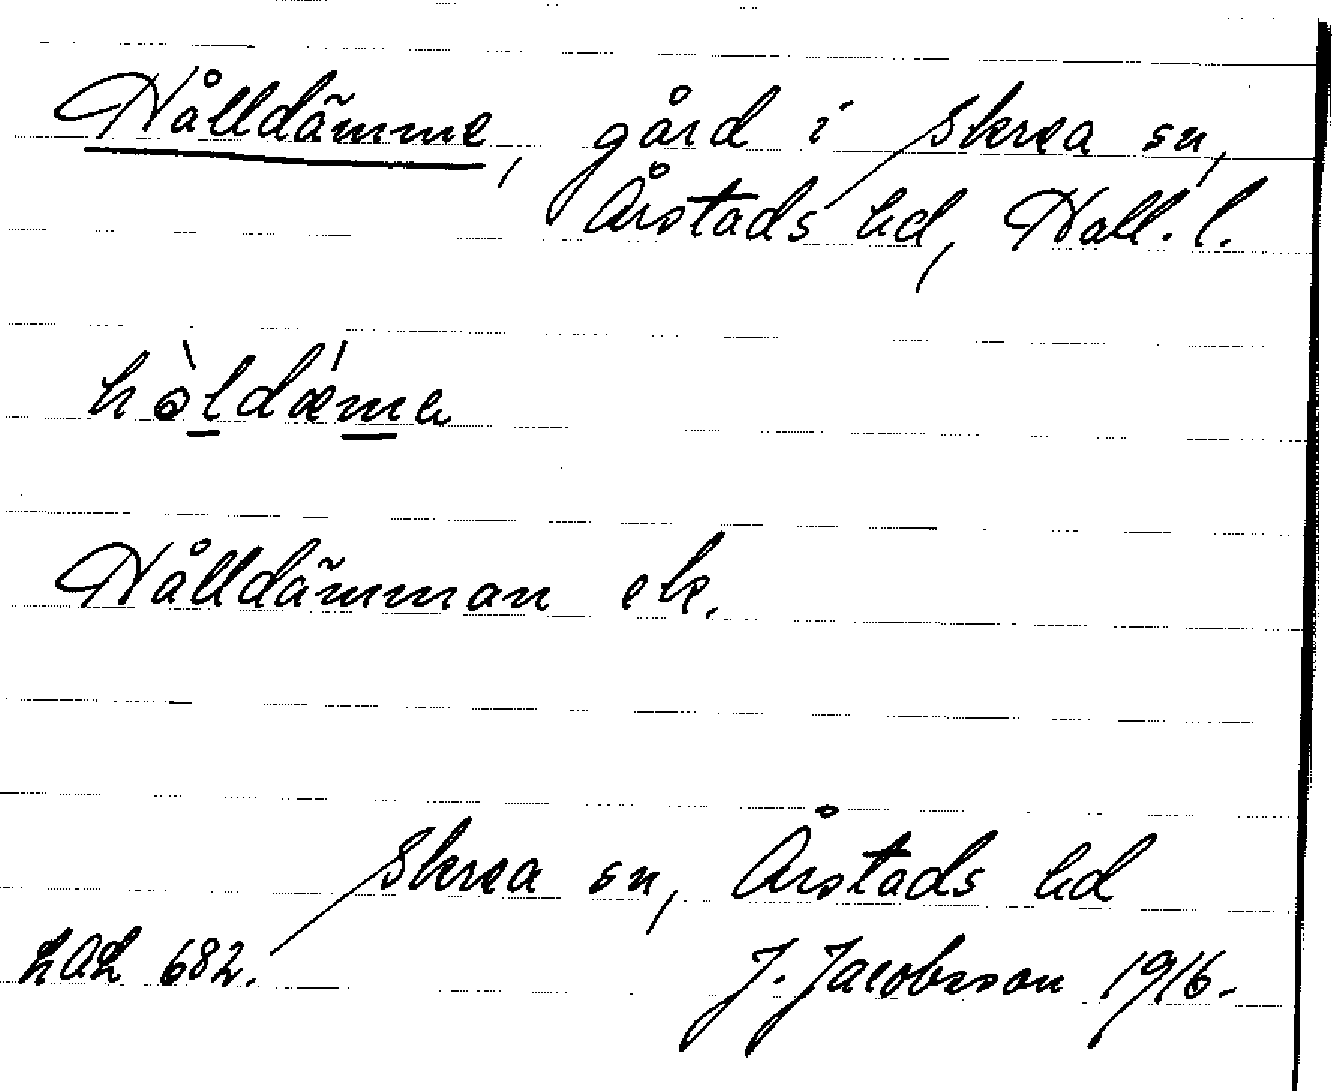 Hålldämme, gård i Skrea sn,
Årstads hd, Hall. l.
hòldǽme
Hålldämman ek.
Skrea sn, Årstads hd
682.
J. Jacobsson 1916.